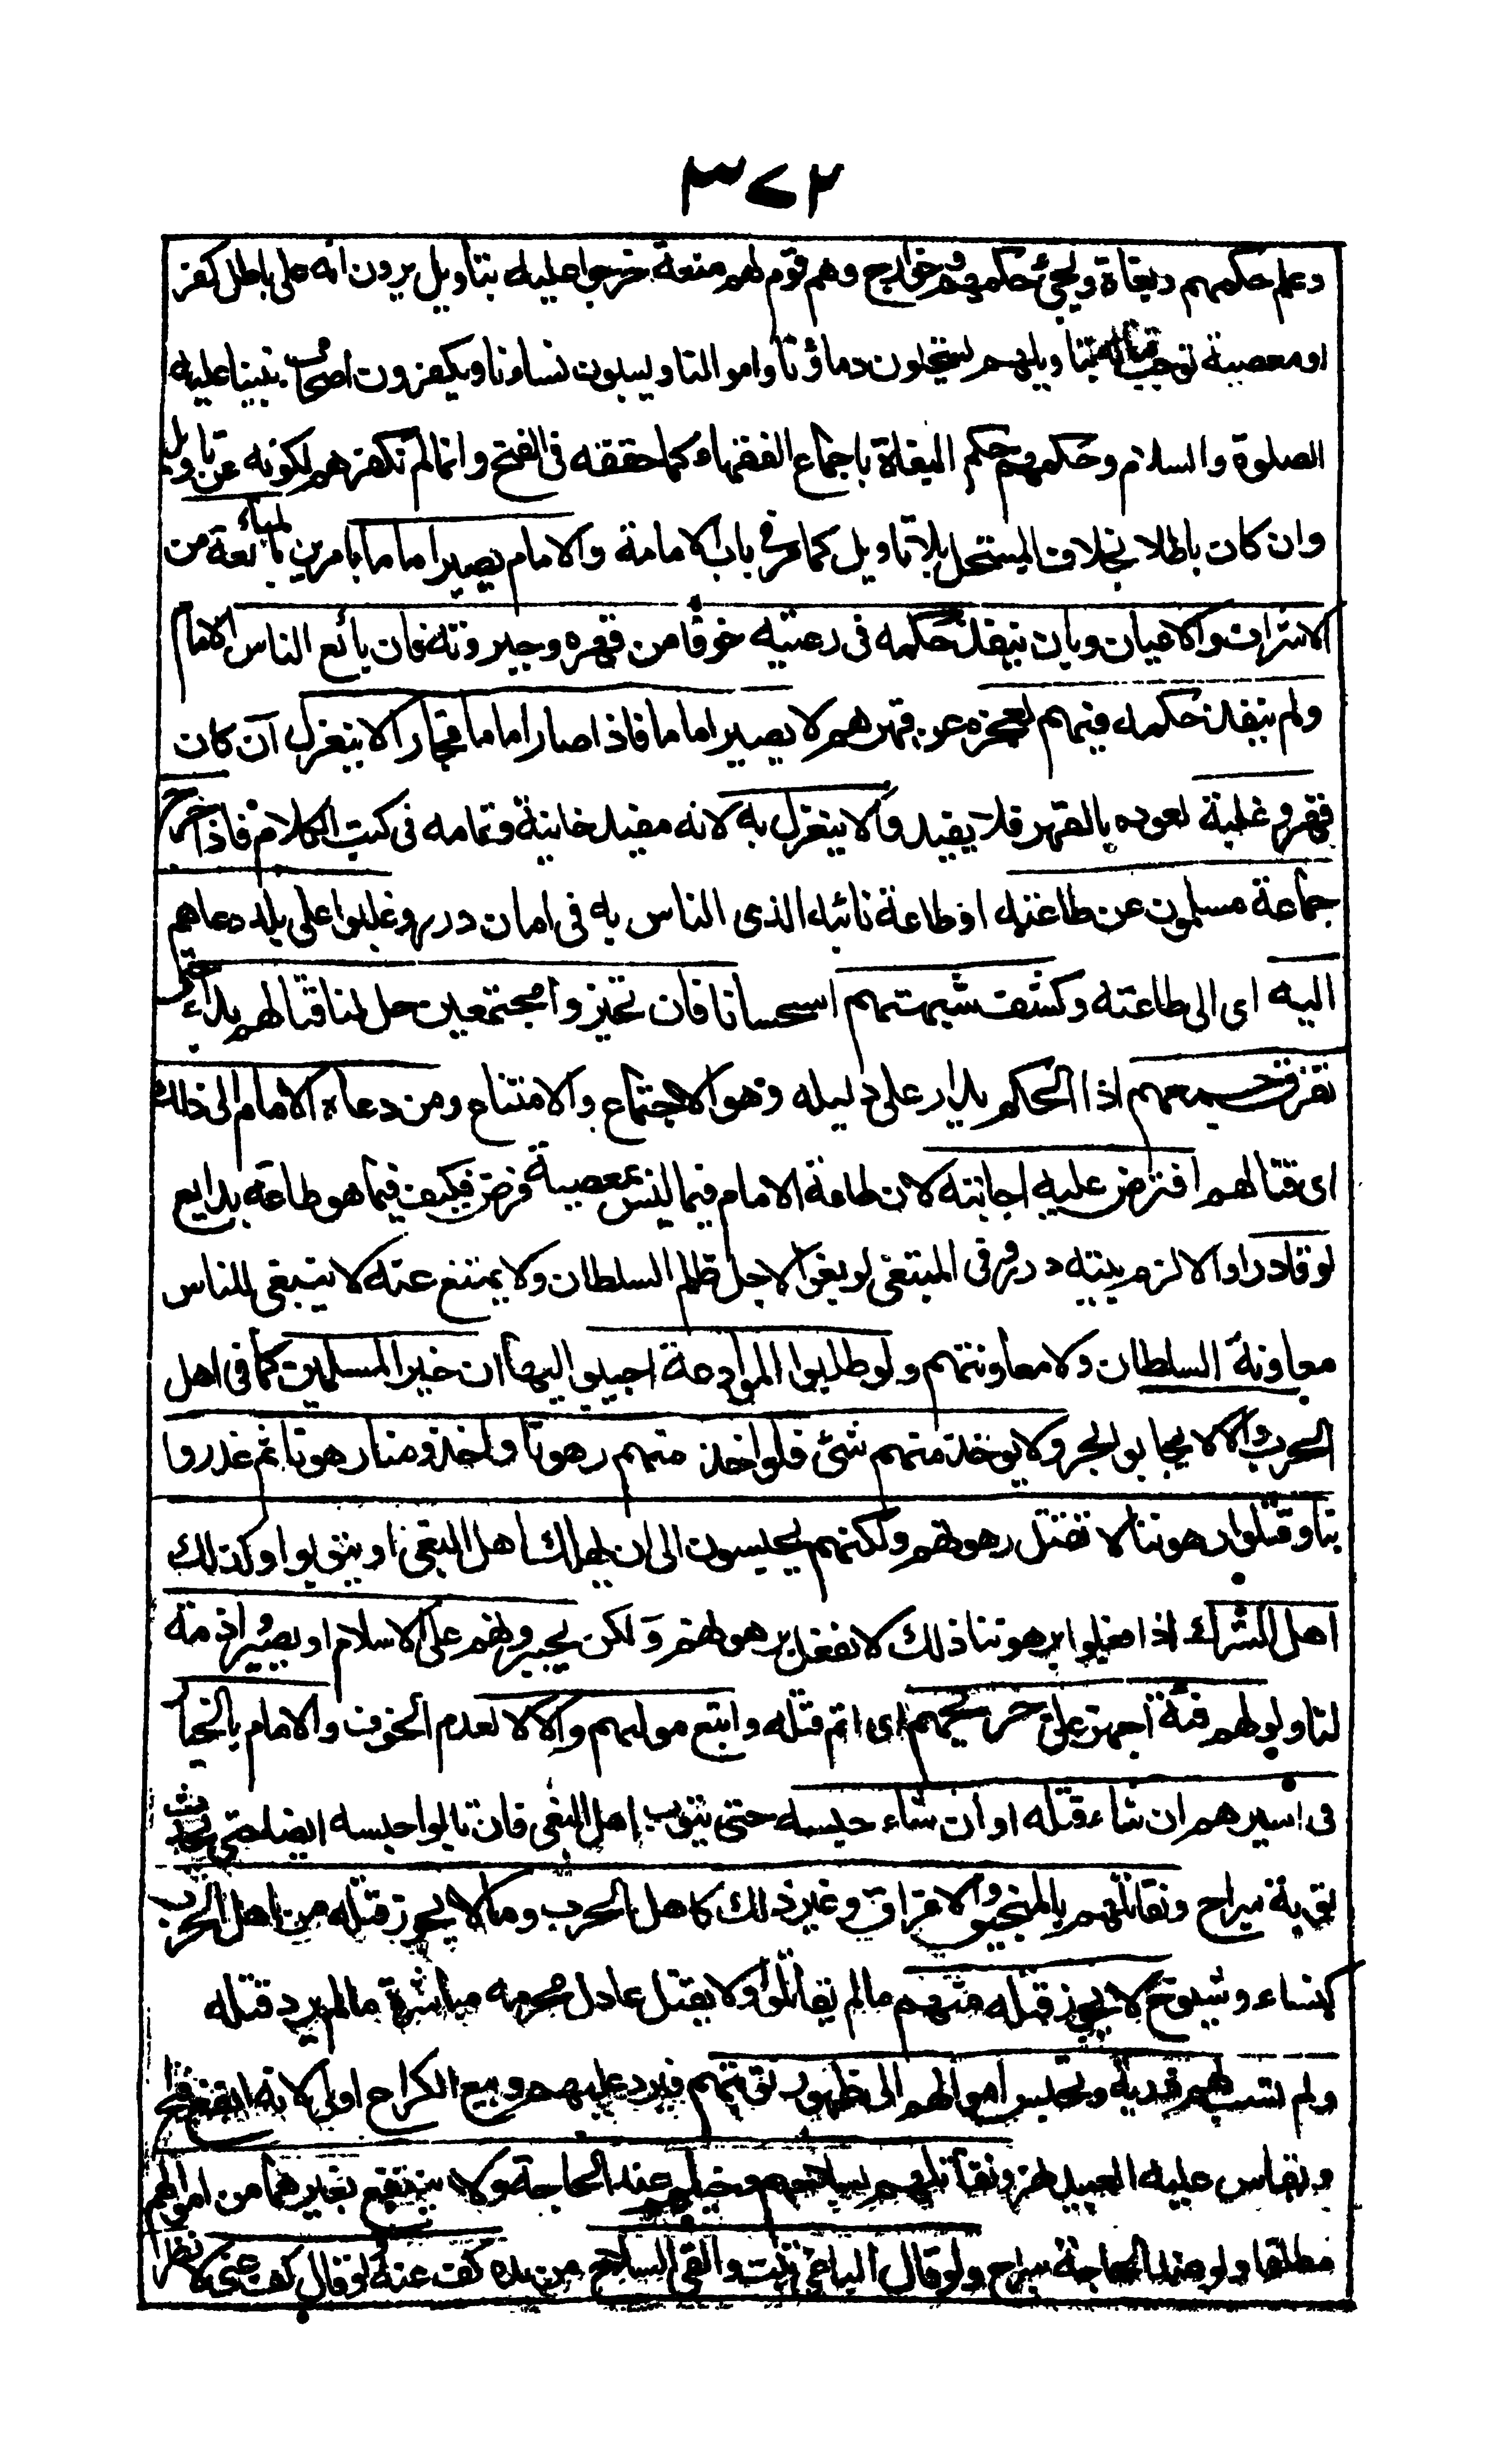 ٣٧٢
وعلم حكمهم وبغاة ويجئ حكمهم وخوارج وهم قوم لهم منعة خرجوا عليه بتاويل يرون انه على باطل كفر
او معصية توجب قتاله بتاويلهم يستحلون دماؤنا واموالنا ويسبون نساءنا ويكفرون اصحاب نبينا عليه
الصلوة والسلام وحكمهم حكم البغاة باجماع الفقهاء كما حققه فى الفتح وانما لم نكفرهم لكونه عن تاويل
وان كان باطلا بخلاف المستحل بلا تاويل كما مر فى باب الامامة والامام يصير اماما بامرين بالمبائعة من
الاشراف والاعيان وبان ينفذ حكمه فى رعيته خوفا من قهره وجبروته فان بائع الناس الامام
ولم ينفذ حكمه فيهم لعجزه عن قهرهم لا يصير اماما فاذا صار اماما فجار لا ينعزل ان كان
قهر وغلبة لعوده بالقهر فلا يفيد والا ينعزل به لانه مفيد خانية وتمامه فى كتب الكلام فاذا خرج
جماعة مسلمون عن طاعته او طاعة نائبه الذى الناس به فى امان درر وغلبوا على بلد دعاهم
اليه اى الى طاعته وكشف شبهتهم استحسانا فان تحيزوا مجتمعين حل لنا قتالهم بداء حتى
نفرق جمعهم اذا الحكم يدار على دليله وهو الاجتماع والامتناع ومن دعاه الامام الى ذلك
اى قتالهم افترض عليه اجابته لان طاعة الامام فيما ليس بمعصية فرض فكيف فيما هو طاعة بدايع
لو قادرا والا لزم بيته درر وفى المبتغى لو بغوا لاجل ظلم السلطان ولا يمتنع عنه لا ينبغى للناس
معاونة السلطان ولا معاونتهم ولو طلبوا الموادعة اجيبوا اليها ان خير المسلمين كما فى اهل
الحرب والا لا يجابو بحر ولا يوخذ منهم شئ فلو اخذ منهم رهونا واخذو منا رهونا ثم غدروا
بنا وقتلوا رهوننا لا نقتل رهونهم ولكنهم يحبسون الى ان يهلك اهل البغى او يتوبوا وكذلك
اهل الشرك اذا فعلوا برهوننا ذلك لا نفعل برهونهم ولكن يجبرونهم على الاسلام او يصيروا ذمة
لنا ولو لهم فئة اجهز على جريحهم اى اتم قتله واتبع موليهم والا لا لعدم الخوف والامام بالخيار
فى اسيرهم ان شاء قتله او ان شاء حبسه حتى يتوب اهل البغى فان تابوا حبسه ايضا حتى يحدث
توبة سراج ونقاتلهم بالمنجنيق والاغراق وغير ذلك كاهل الحرب وما لا يجوز قتله من اهل الحرب
كنساء وشيوخ لا يجوز قتله منهم ما لم يقاتلوا ولا يقتل عادل محرمه مباشرة ما لم يرد قتله
ولم تسب لهم ذرية وتحبس اموالهم الى ظهور توبتهم فيرد عليهم وبيع الكراع اولى لانه انفع فتح
ونقاس عليه العبيد نهر ونقاتلهم بسلاحهم وخيلهم عند الحاجة ولا ينتفع بغيرهما من اموالهم
مطلقا ولو عند الحاجة سراج ولو قال الباغى تبت والقى السلاح من يده كف عنه لو قال كف عنى لانظر